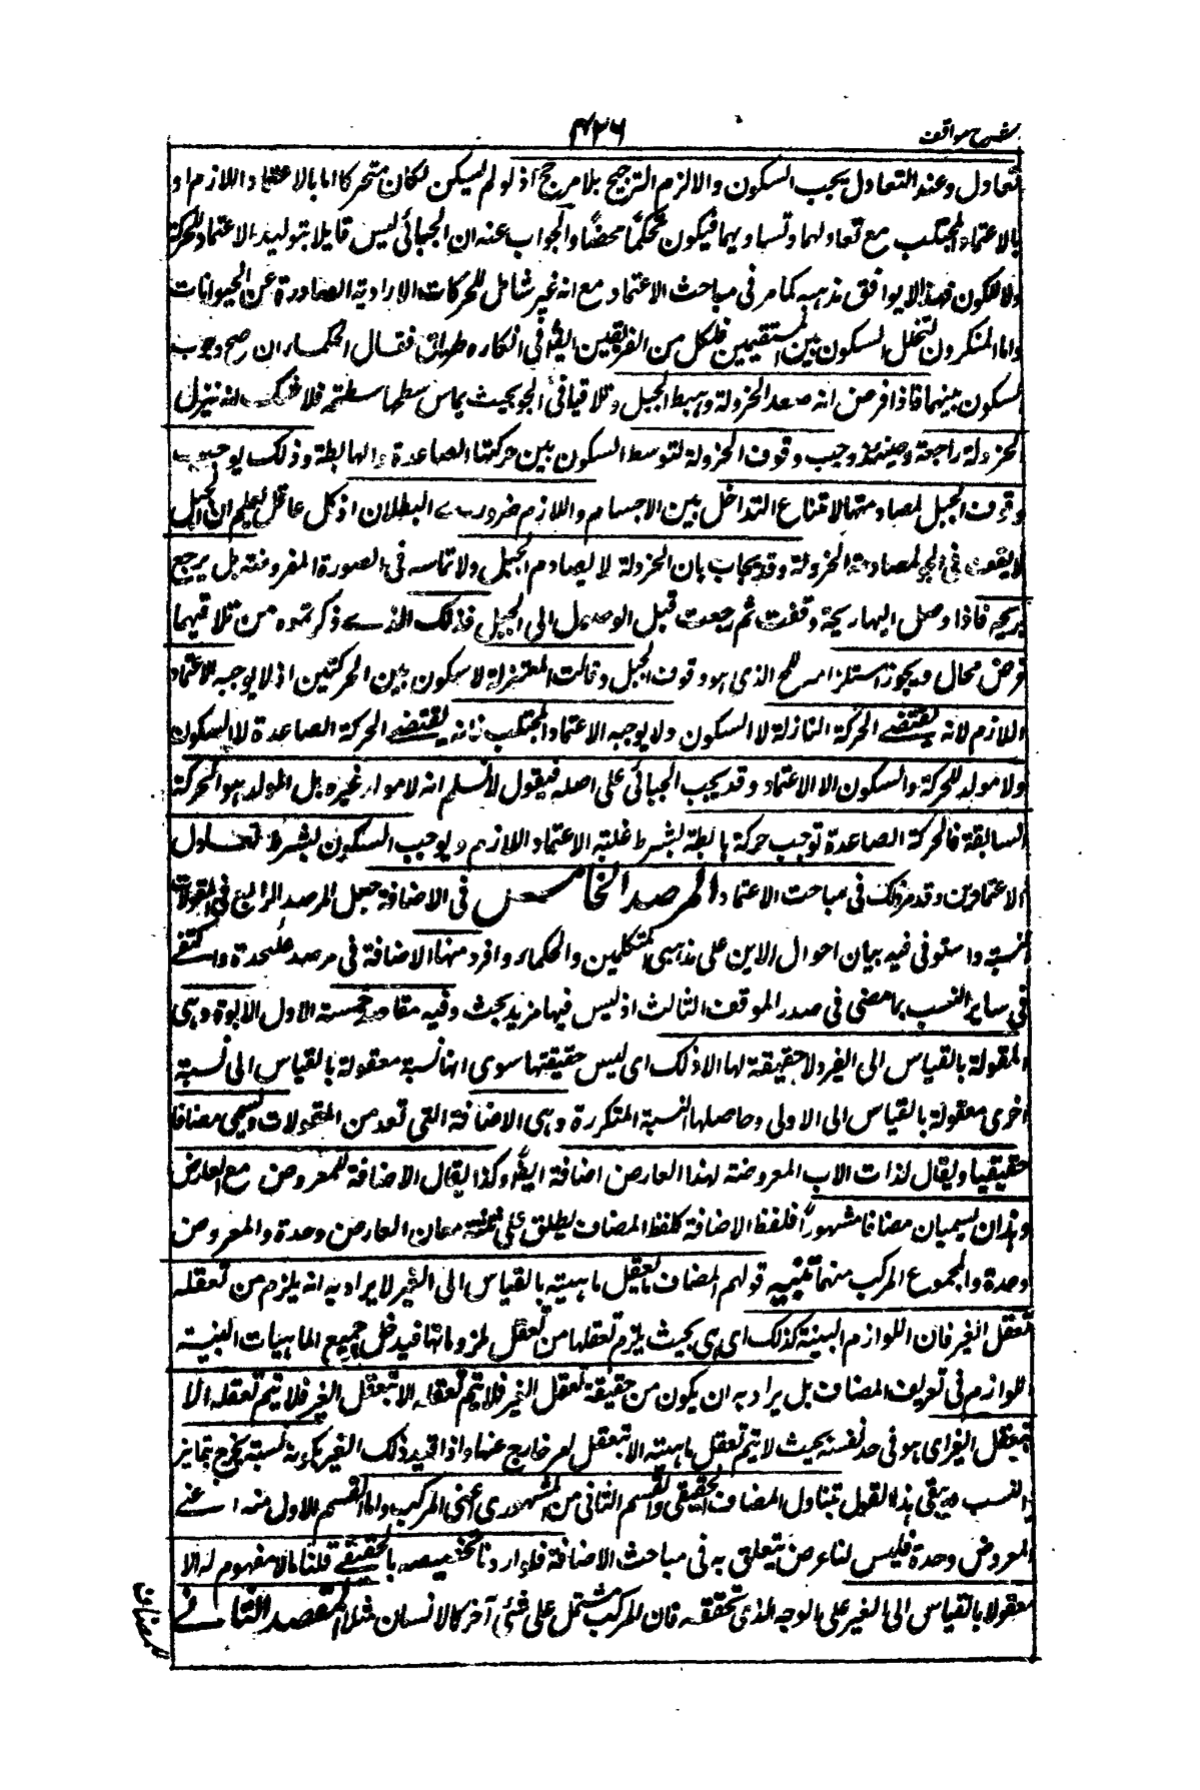 شرح مواقف
۴۲۶
تعادل وعند التعادل يجب السكون والا لزم الترجيح بلا مرجح اذ لو لم يسكن لكان متحركا اما بالاعتماد اللازم او
بالاعتماد المجتلب مع تعادلهما وتساويهما فيكون تحكما محضا والجواب عنه ان الجبائي ليس قايلا بتوليد الاعتماد للحركة
ولا للسكون فهذا لا يوافق مذهبه كما مر في مباحث الاعتماد مع انه غير شامل للحركات الارادية الصادرة عن الحيوانات
واما المنكرون لتخلل السكون بين المستقيمين فلكل من الفريقين ايضا في انكاره طريق فقال الحكماء ان صح وجوب
السكون بينهما فاذا فرض انه صعد الخردلة وهبط الجبل وتلاقيا في الجو بحيث يماس سطحها سطحه فلا شك انه تنزل
الخردلة راجعة وحينئذ وجب وقوف الخردلة لتوسط السكون بين حركتها الصاعدة والهابطة وذلك يوجب
وقوف الجبل لمصادمتها لامتناع التداخل بين الاجسام واللازم ضروري البطلان اذ كل عاقل يعلم ان الجبل
لا يقف في الجو لمصادمة الخردلة وقد يجاب بان الخردلة لا يصادم الجبل ولا تماسه في الصورة المفروضة بل يرجع
بريحه فاذا وصل اليها ريحه وقفت ثم رجعت قبل الوصول الى الجبل فذلك الذي ذكرتموه من تلاقيهما
فرض محال ويجوز استلزامه للمحال الذي هو وقوف الجبل وقالت المعتزلة لا سكون بين الحركتين اذ لا يوجبه الاعتماد
اللازم لانه يقتضي الحركة النازلة لا السكون ولا يوجبه الاعتماد المجتلب فانه يقتضي الحركة الصاعدة لا السكون
ولا مولد للحركة والسكون الا الاعتماد وقد يجيب الجبائي على اصله فيقول لا نسلم انه لا مولد غيره بل المولد هو الحركة
السابقة فالحركة الصاعدة توجب حركة هابطة بشرط غلبة الاعتماد اللازم ويوجب السكون بشرط تعادل
الاعتمادين وقد مر ذلك في مباحث الاعتماد المرصد الخامس في الاضافة جعل المرصد الرابع في المقولات
النسبية واستوفى فيه بيان احوال الاين على مذهبي المتكلمين والحكماء وافرد منها الاضافة في مرصد علىحدة واكتفى
في ساير النسب بما مضى في صدر الموقف الثالث اذ ليس فيها مزيد بحث وفيه مقاصد خمسة الاول الابوة وهي
المقولة بالقياس الى الغير ولا حقيقة لها الا ذلك اي ليس حقيقتها سوى انها نسبة معقولة بالقياس الى نسبة
اخرى معقولة بالقياس الى الاولى وحاصلها النسبة المتكررة وهي الاضافة التي تعد من المقولات ويسمى مضافا
حقيقيا ويقال لذات الاب المعروضة لهذا العارض اضافة ايضا وكذا يقال الاضافة للمعروض مع العارض
وهذان يسميان مضافا مشهوريا فلفظ الاضافة كلفظ المضاف يطلق على ثلثة معان العارض وحده والمعروض
وحده والمجموع المركب منهما تنبيه قولهم المضاف ما يعقل ماهيته بالقياس الى الغير لا يراد به انه يلزم من تعقله
تعقل الغير فان اللوازم البينة كذلك اي هي بحيث يلزم تعقلها من تعقل ملزوماتها فيدخل جميع الماهيات البينة
اللوازم في تعريف المضاف بل يراد به ان يكون من حقيقته تعقل الغير فلا يتم تعقله الا بتعقل الغير فلا يتم تعقله الا
بتعقل الغير اي هو في حد نفسه بحيث لا يتم تعقل ماهيته الا بتعقل امر خارج عنها واذا قيد ذلك الغير بكونه نسبة يخرج سائر
النسب ويبقى هذا القول يتناول المضاف الحقيقي والقسم الثاني من المشهوري اعني المركب واما القسم الاول منه اعني
المعروض وحده فليس لنا غرض يتعلق به في مباحث الاضافة فلو اردنا تخصيصه بالحقيقي قلنا ما لا مفهوم له الا
معقولا بالقياس الى الغير على الوجه الذي تحققته فان المركب مشتمل على شئ آخر كالانسان مثلا المقصد الثاني